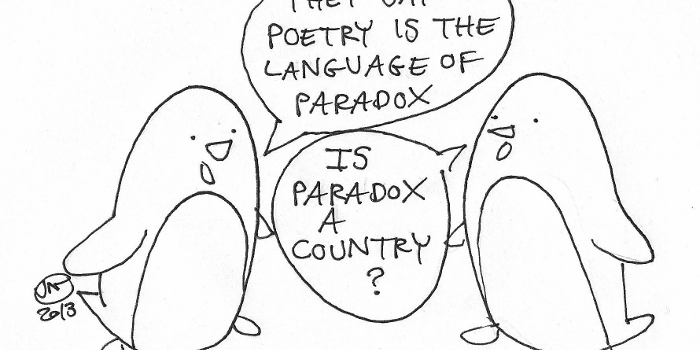 POETRY IS THE
LANGUAGE OF
PARADOX
IS
PARADOX
A
COUNTRY
?
2013